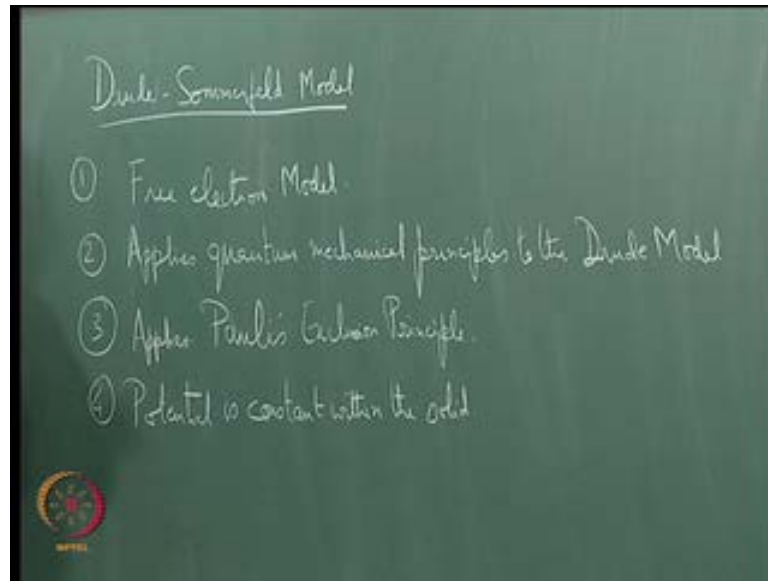 Drude-Sommerfeld Model
① Free electron Model.
② Applies quantum mechanical principles to the Drude Model
③ Applies Pauli's Exclusion Principle.
④ Potential is constant within the solid
NPTEL